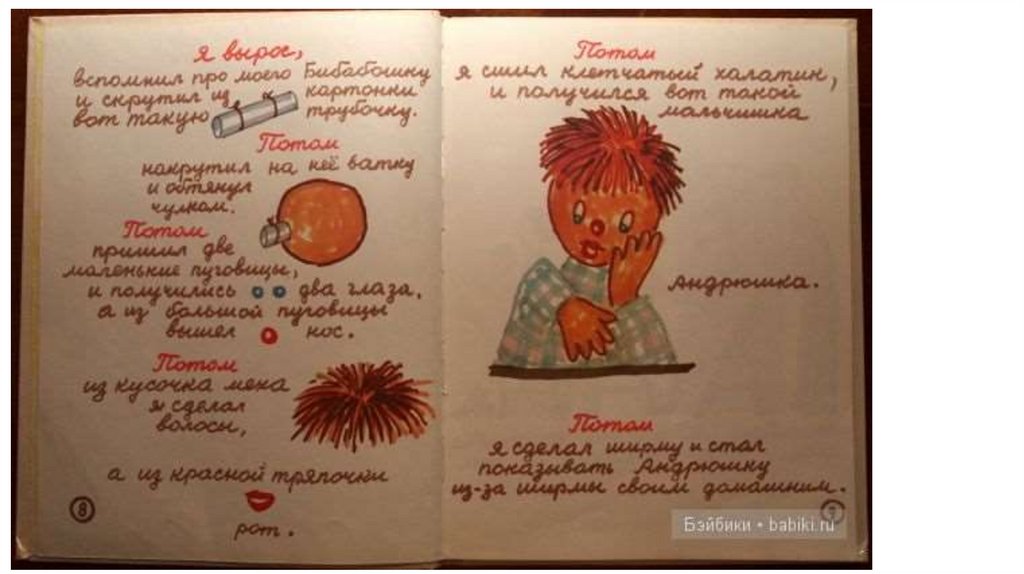 Я вырос,
вспомнил про моего Бибабошку
и скрутил из картонки
вот такую трубочку.
Потом
накрутил на неё ватку
и обтянул
чулком.
Потом
пришил две
маленькие пуговицы,
и получились два глаза,
а из большой пуговицы
вышел нос.
Потом
из кусочка меха
я сделал
волосы,
а из красной тряпочки
рот.
8
Потом
я сшил клетчатый халатик,
и получился вот такой
мальчишка
Андрюшка.
Потом
я сделал ширму и стал
показывать Андрюшку
из-за ширмы своим домашним.
Бэйбики • babiki.ru